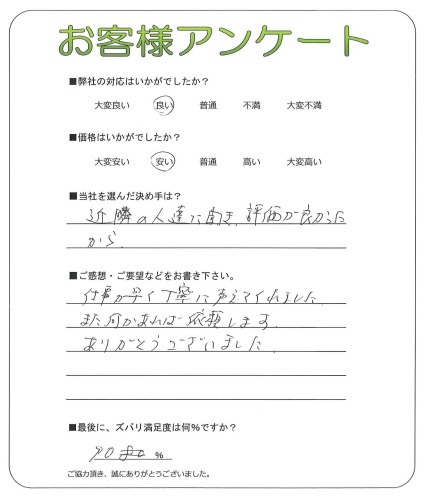 お客様アンケート
■弊社の対応はいかがでしたか？
大変良い 良い 普通 不満 大変不満
■価格はいかがでしたか？
大変安い 安い 普通 高い 大変高い
■当社を選んだ決め手は？
近隣の人達に聞き、評価が良かった
から
■ご感想・ご要望などをお書き下さい。
仕事が早く丁寧に応えてくれました
また何かあれば依頼します
ありがとうございました
■最後に、ズバリ満足度は何％ですか？
90 %
ご協力頂き、誠にありがとうございました。